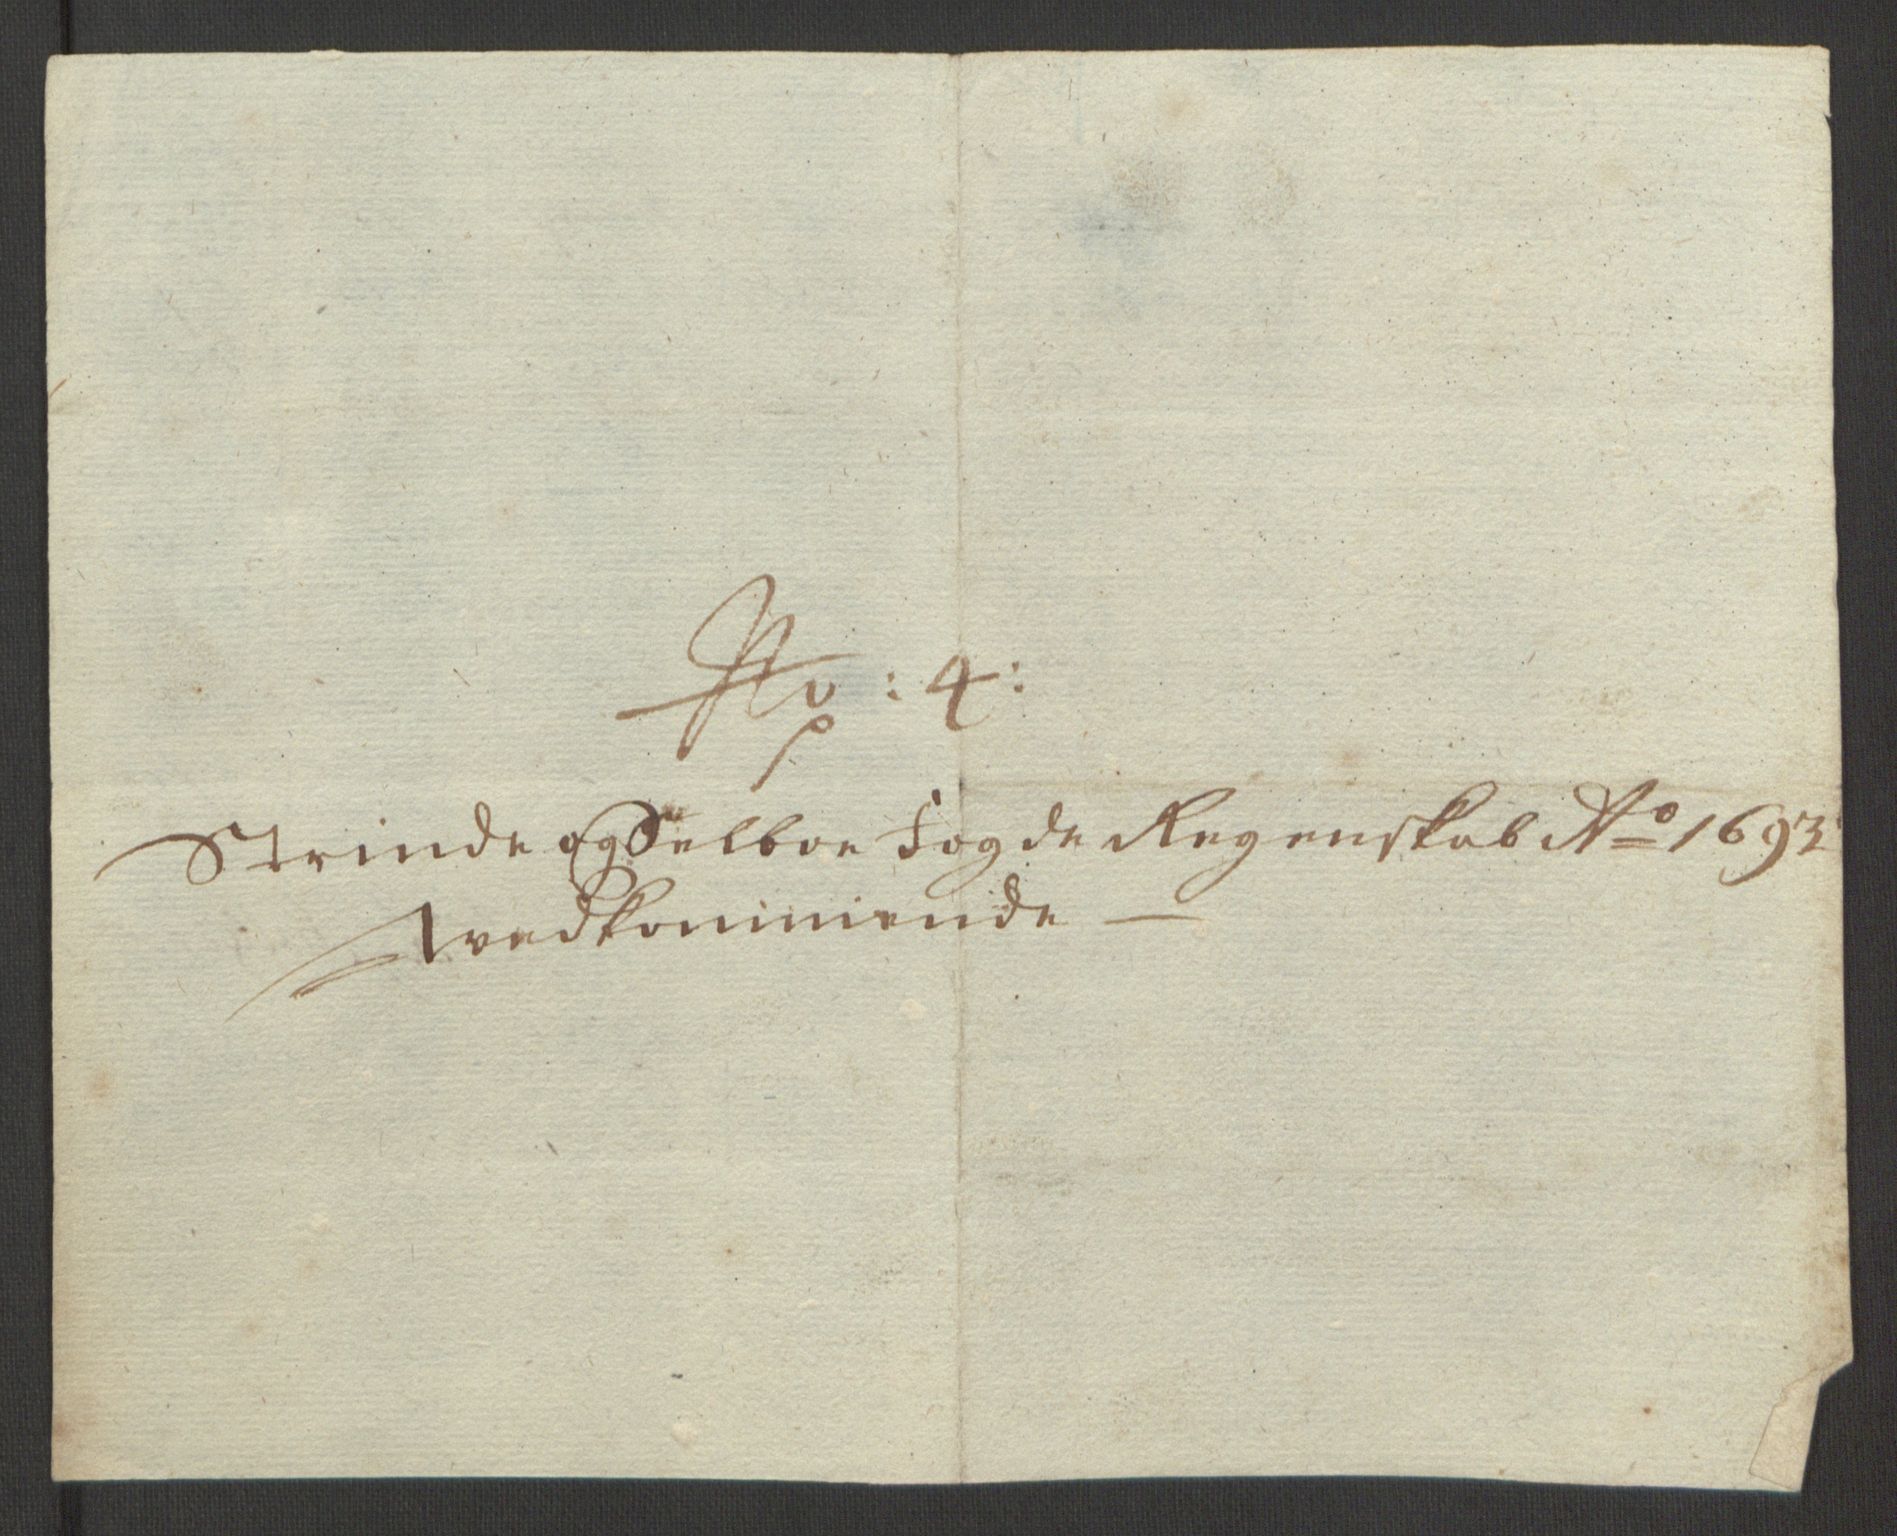 No: 4:
Strinde og Selboe Fogde Regenskab Ao 1693
wedkommende